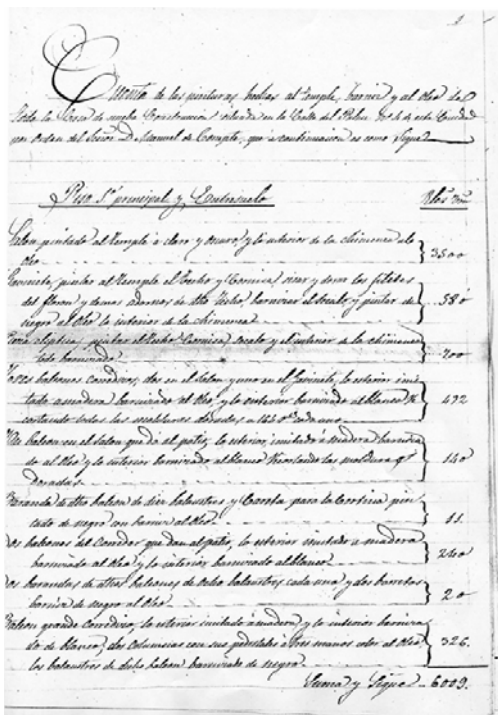 Cuenta de las pinturas hechas al temple, barniz y al oleo de
toda la Casa de nueba Construcion situada en la Calle del Palau Nº 4 de esta Ciudad
por orden del Señor D. Manuel de Compte, que a continuacion es como Sigue
Piso 1º principal y Entresuelo
Salon pintado al temple a claro y oscuro, y lo interior de la chimenea al
oleo 3500
Gavinete, pintar al temple el techo y Cornisa, dorar los filetes
del floron y demas adornos de dho techo, barnizar el Socalo y pintar de
negro al oleo lo interior de la chimenea 580
pintar el techo Cornisa Socalo y el interior de la chimenea
todo barnizado 700
balcones corredizos, dos en el Salon y uno en el Gavinete, lo esterior imi-
tado a madera barnizado al oleo, y lo interior barnizado al blanco
cortando todas las molduras doradas a cada uno 492
balcon en el Salon que dá al patio, lo esterior imitado a madera barniza-
do al oleo y lo interior barnizado al blanco recortando las molduras
doradas 140
Baranda de dho balcon de diez balaustres y para la Cortina pin-
tado de negro con barniz al oleo 11.
balcones del Corredor que dan al patio, lo esterior imitado a madera
barnizado al oleo y lo interior barnizado al blanco 240
barandas de dichos balcones de ocho balaustres cada una y dos barretas
barniz de negro al oleo 20
Balcon grande Corredizo, lo esterior imitado a madera, y lo interior barniza-
do de blanco, dos Columnas con sus pedestales a tres manos color al oleo,
los balaustres de dicho balcon barnizado de negro 326.
Suma y Sigue 6009.